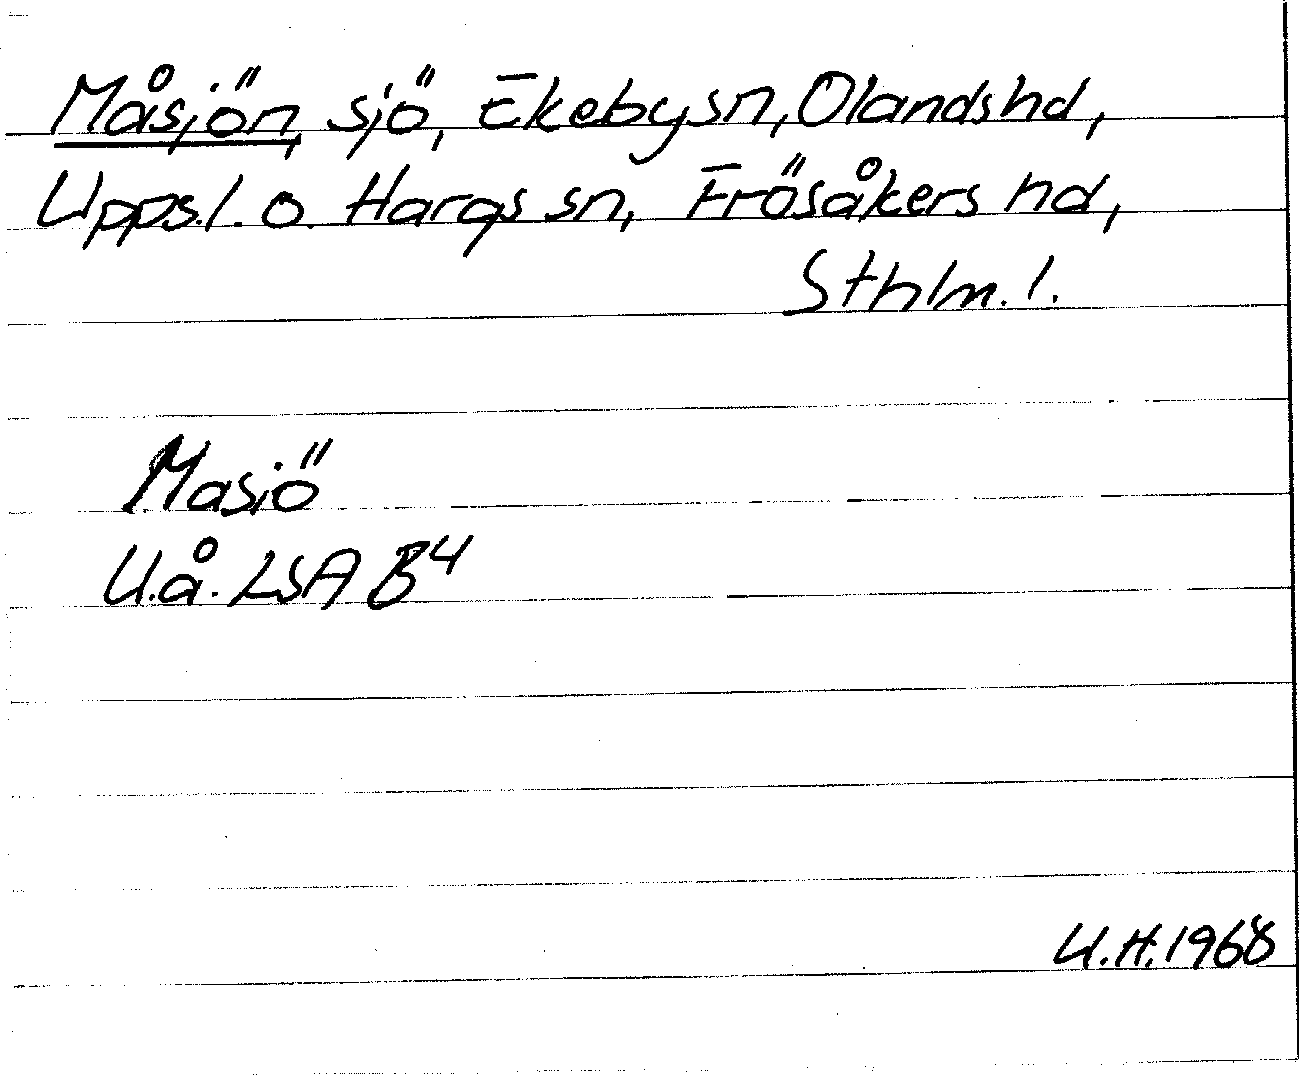 Måsjön, sjö, Ekeby sn, Olands hd,
Upps.l. o. Hargs sn, Frösåkers hd,
Sthlm. l.
Masiö
U.å. LSA B4
U.H. 1968